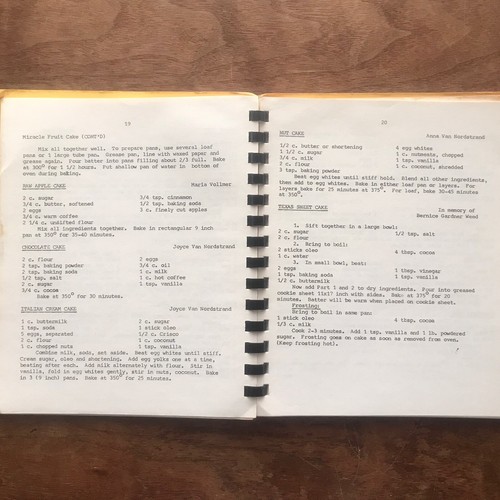 19
Miracle Fruit Cake (CONT'D)
Mix all together well. To prepare pans, use several loaf
pans or 1 large tube pan. Grease pan, line with waxed paper and
grease again. Pour batter into pans filling about 2/3 full. Bake
at 300° for 1 1/2 hours. Put shallow pan of water in bottom of
oven during baking.
RAW APPLE CAKE Marie Vollmer
2 c. sugar 3/4 tsp. cinnamon
3/4 c. butter, softened 1/2 tsp. baking soda
2 eggs 3 c. finely cut apples
3/4 c. warm coffee
2 1/4 c. unsifted flour
Mix all ingredients together. Bake in rectangular 9 inch
pan at 350° for 35-40 minutes.
CHOCOLATE CAKE Joyce Van Nordstrand
2 c. flour 2 eggs
2 tsp. baking powder 3/4 c. oil
2 tsp. baking soda 1 c. milk
1/2 tsp. salt 1 c. hot coffee
2 c. sugar 1 tsp. vanilla
3/4 c. cocoa
Bake at 350° for 30 minutes.
ITALIAN CREAM CAKE Joyce Van Nordstrand
1 c. buttermilk 2 c. sugar
1 tsp. soda 1 stick oleo
5 eggs, separated 1/2 c. Crisco
2 c. flour 1 c. coconut
1 c. chopped nuts 1 tsp. vanilla
Combine milk, soda, set aside. Beat egg whites until stiff.
Cream sugar, oleo and shortening. Add egg yolks one at a time,
beating after each. Add milk alternately with flour. Stir in
vanilla, fold in egg whites gently, stir in nuts, coconut. Bake
in 3 (9 inch) pans. Bake at 350° for 25 minutes.
20
NUT CAKE Anna Van Nordstrand
1/2 c. butter or shortening 4 egg whites
1 1/2 c. sugar 1 c. nutmeats, chopped
3/4 c. milk 1 tsp. vanilla
2 c. flour 1 c. coconut, shredded
3 tsp. baking powder
Beat egg whites until stiff hold. Blend all other ingredients,
then add to egg whites. Bake in either loaf pan or layers. For
layers bake for 25 minutes at 375°. For loaf, bake 30-40 minutes
at 350°.
TEXAS SHEET CAKE In memory of
Bernice Gardner Wend
1. Sift together in a large bowl:
2 c. sugar 1/2 tsp. salt
2 c. flour
2. Bring to boil:
2 sticks oleo 4 tbsp. cocoa
1 c. water
3. In small bowl, beat:
2 eggs 1 tbsp. vinegar
1 tsp. baking soda 1 tsp. vanilla
1/2 c. buttermilk
Now add Part 1 and 2 to dry ingredients. Pour into greased
cookie sheet 11x17 inch with sides. Bake at 375° for 20
minutes. Batter will be warm when placed on cookie sheet.
Frosting:
Bring to boil in same pan:
1 stick oleo 4 tbsp. cocoa
1/3 c. milk
Cook 2-3 minutes. Add 1 tsp. vanilla and 1 lb. powdered
sugar. Frosting goes on cake as soon as removed from oven.
(Keep frosting hot).